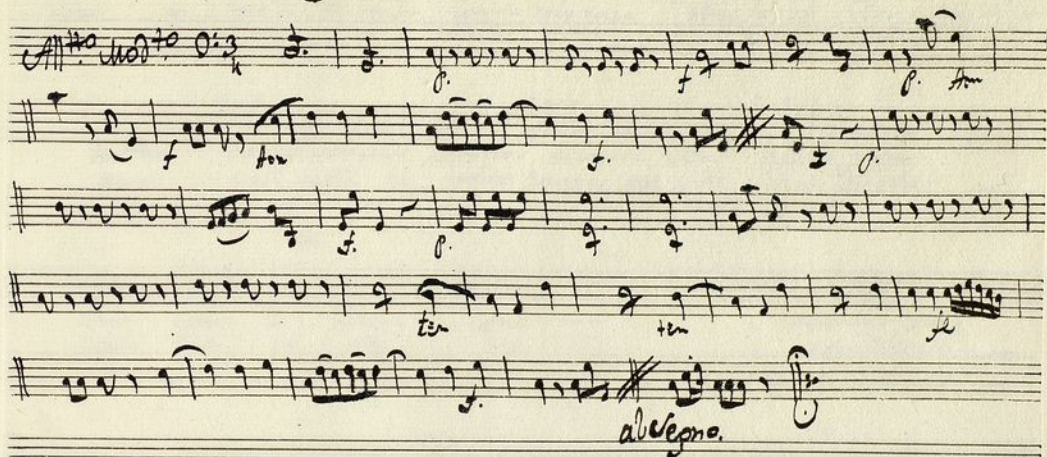 All:tto Mod:to 3/4
p. f p. ten
f ten f. p.
f. p.
ten ten fe
f.
al Segno.